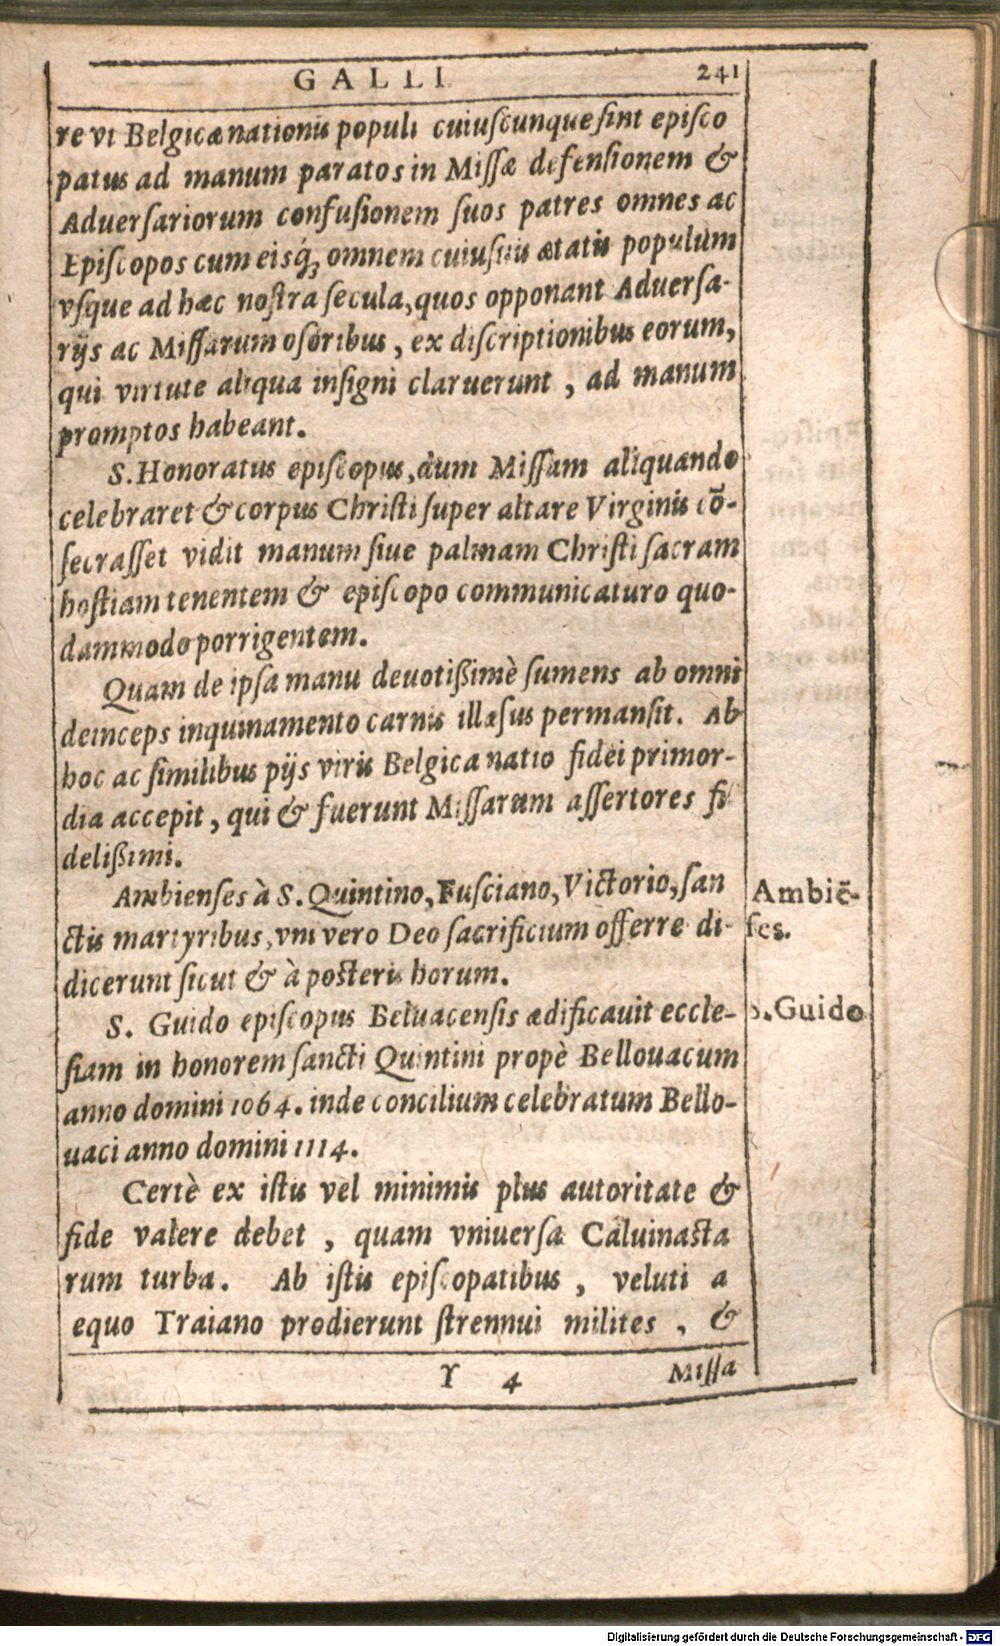 GALLI 241
re vt Belgicæ nationis populi cuiuscunque sint episco
patus ad manum paratos in Missæ defensionem &
Adversariorum confusionem suos patres omnes ac
Episcopos cum eisq́; omnem cuiusuis ætatis populum
vsque ad hæc nostra secula, quos opponant Adversa-
rijs ac Missarum osoribus, ex discriptionibus eorum,
qui virtute aliqua insigni claruerunt, ad manum
promptos habeant.
S. Honoratus episcopus, dum Missam aliquando
celebraret & corpus Christi super altare Virginis cō-
secrasset vidit manum siue palmam Christi sacram
hostiam tenentem & episcopo communicaturo quo-
dammodo porrigentem.
Quam de ipsa manu deuotißimè sumens ab omni
deinceps inquinamento carnis illæsus permansit. Ab
hoc ac similibus pijs viris Belgica natio fidei primor-
dia accepit, qui & fuerunt Missarum assertores fi
delißimi.
Ambienses à S. Quintino, Fusciano, Victorio, san
ctis martyribus, vni vero Deo sacrificium offerre di-
dicerunt sicut & à posteris horum.
Ambiē-
ses.
S. Guido episcopus Beluacensis ædificavit eccle-
siam in honorem sancti Quintini propè Bellouacum
anno domini 1064. inde concilium celebratum Bello-
uaci anno domini 1114.
S. Guido
Certè ex istis vel minimis plus autoritate &
fide valere debet, quam vniuersa Caluinasta
rum turba. Ab istis episcopatibus, veluti a
equo Traiano prodierunt strennui milites, &
Y 4 Missa
Digitalisierung gefördert durch die Deutsche Forschungsgemeinschaft - DFG